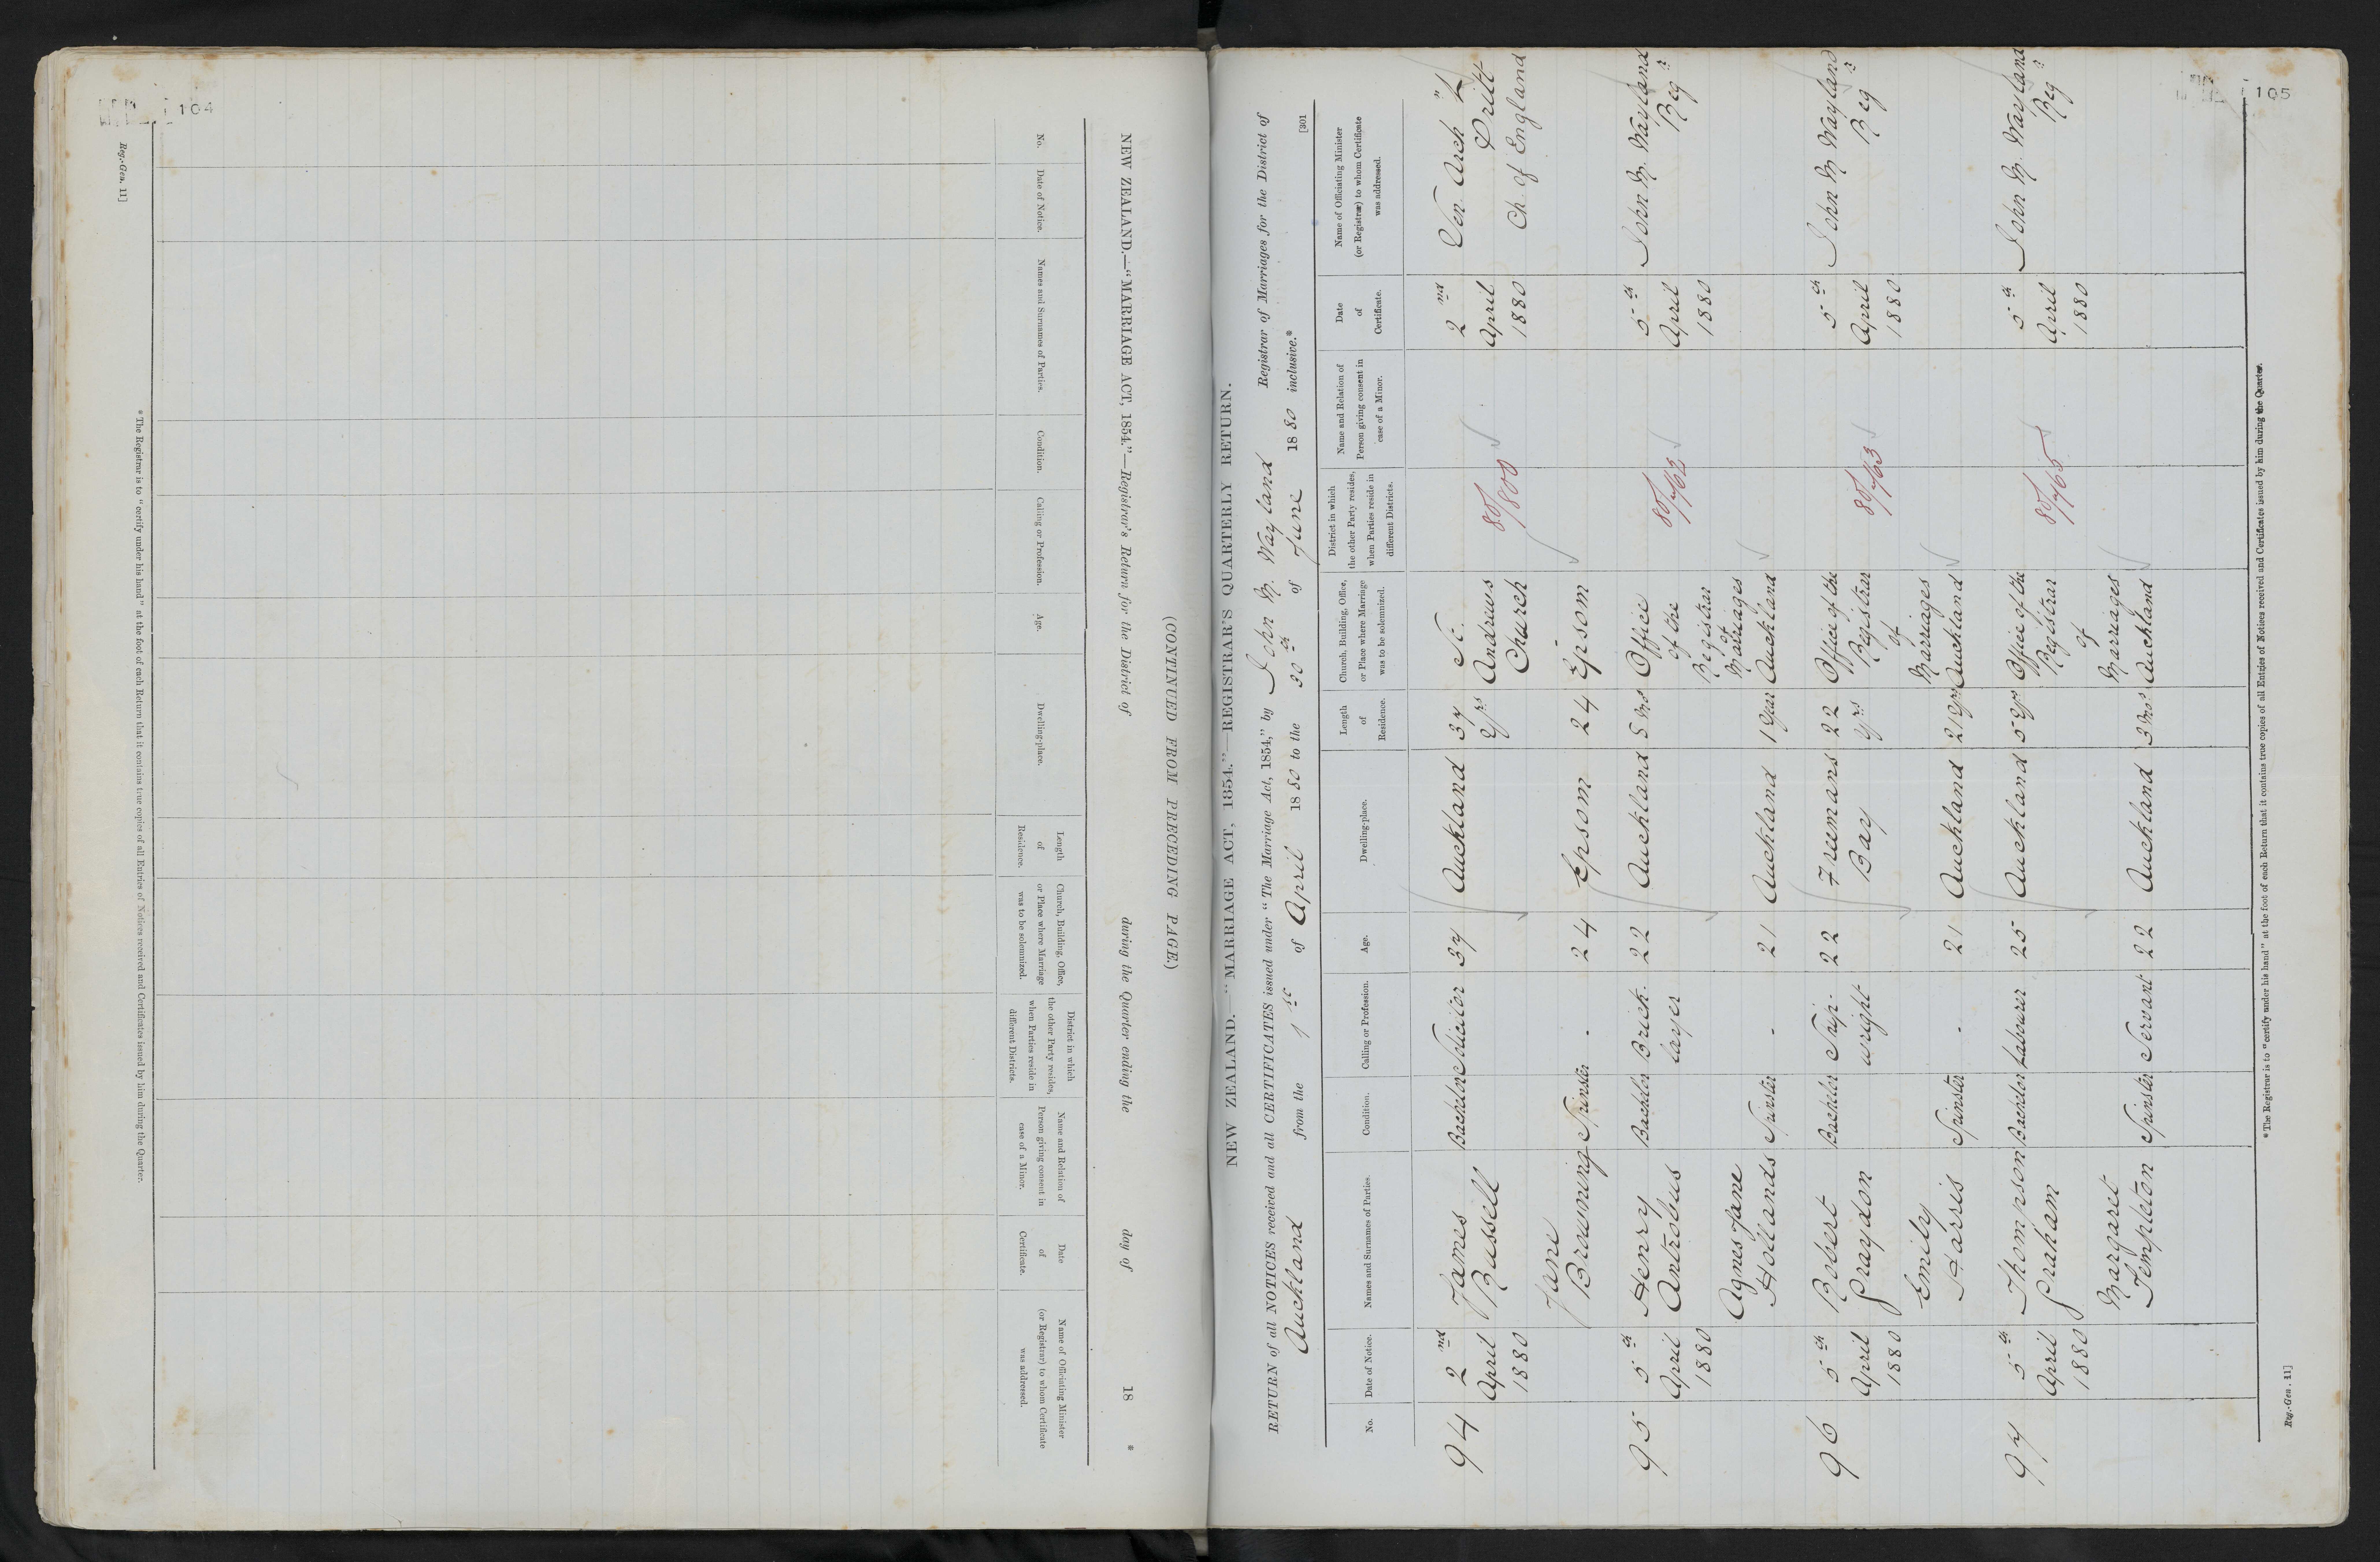 104
Reg.-Gen. 11]
(CONTINUED FROM PRECEDING PAGE.)
NEW ZEALAND.—"MARRIAGE ACT, 1854."—Registrar's Return for the District of during the Quarter ending the day of 18 *
No.
Date of Notice.
Names and Surnames of Parties.
Condition.
Calling or Profession.
Age.
Dwelling-place.
Length
of
Residence.
Church, Building, Office,
or Place where Marriage
was to be solemnized.
District in which
the other Party resides,
when Parties reside in
different Districts.
Name and Relation of
Person giving consent in
case of a Minor.
Date
of
Certificate.
Name of Officiating Minister
(or Registrar) to whom Certificate
was addressed.
* The Registrar is to "certify under his hand" at the foot of each Return that it contains true copies of all Entries of Notices received and Certificates issued by him during the Quarter.
105
[301
NEW ZEALAND.—"MARRIAGE ACT, 1854."—REGISTRAR'S QUARTERLY RETURN.
RETURN of all NOTICES received and all CERTIFICATES issued under "The Marriage Act, 1854," by John M. Wayland Registrar of Marriages for the District of
Auckland from the 1st of April 1880 to the 30th of June 1880 inclusive.*
No.
Date of Notice.
Names and Surnames of Parties.
Condition.
Calling or Profession.
Age.
Dwelling-place.
Length
of
Residence.
Church, Building, Office,
or Place where Marriage
was to be solemnized.
District in which
the other Party resides,
when Parties reside in
different Districts.
Name and Relation of
Person giving consent in
case of a Minor.
Date
of
Certificate.
Name of Officiating Minister
(or Registrar) to whom Certificate
was addressed.
94
2nd
April
1880
James
Russell
Bachelor
Solicitor
37
Auckland
37
Yrs
St.
Andrews
Church
Epsom
80/800
2nd
April
1880
Ven. Arch
Ch. of England
Jane
Browning
Spinster
-
24
Epsom
24
95
5th
April
1880
Henry
Antrobus
Bachelor
Brick-
layer
22
Auckland
5 Mos
Office
of the
Registrar
of
Marriages
Auckland
80/762
5th
April
1880
John M. Wayland
Regr
Agnes Jane
Hollands
Spinster
-
21
Auckland
1 Year
96
5th
April
1880
Robert
Graydon
Bachelor
Ship-
wright
22
Freemans
Bay
22
Yrs
Office of the
Registrar
of
Marriages
Auckland
80/763
5th
April
1880
John M. Wayland
Regr
Emily
Harris
Spinster
-
21
Auckland
21 Yrs
97
5th
April
1880
Thompson
Graham
Bachelor
Labourer
25
Auckland
5 Yrs
Office of the
Registrar
of
Marriages
Auckland
80/765
5th
April
1880
John M. Wayland
Regr
Margaret
Templeton
Spinster
Servant
22
Auckland
3 Mos
* The Registrar is to "certify under his hand" at the foot of each Return that it contains true copies of all Entries of Notices received and Certificates issued by him during the Quarter.
Reg.-Gen. 11]